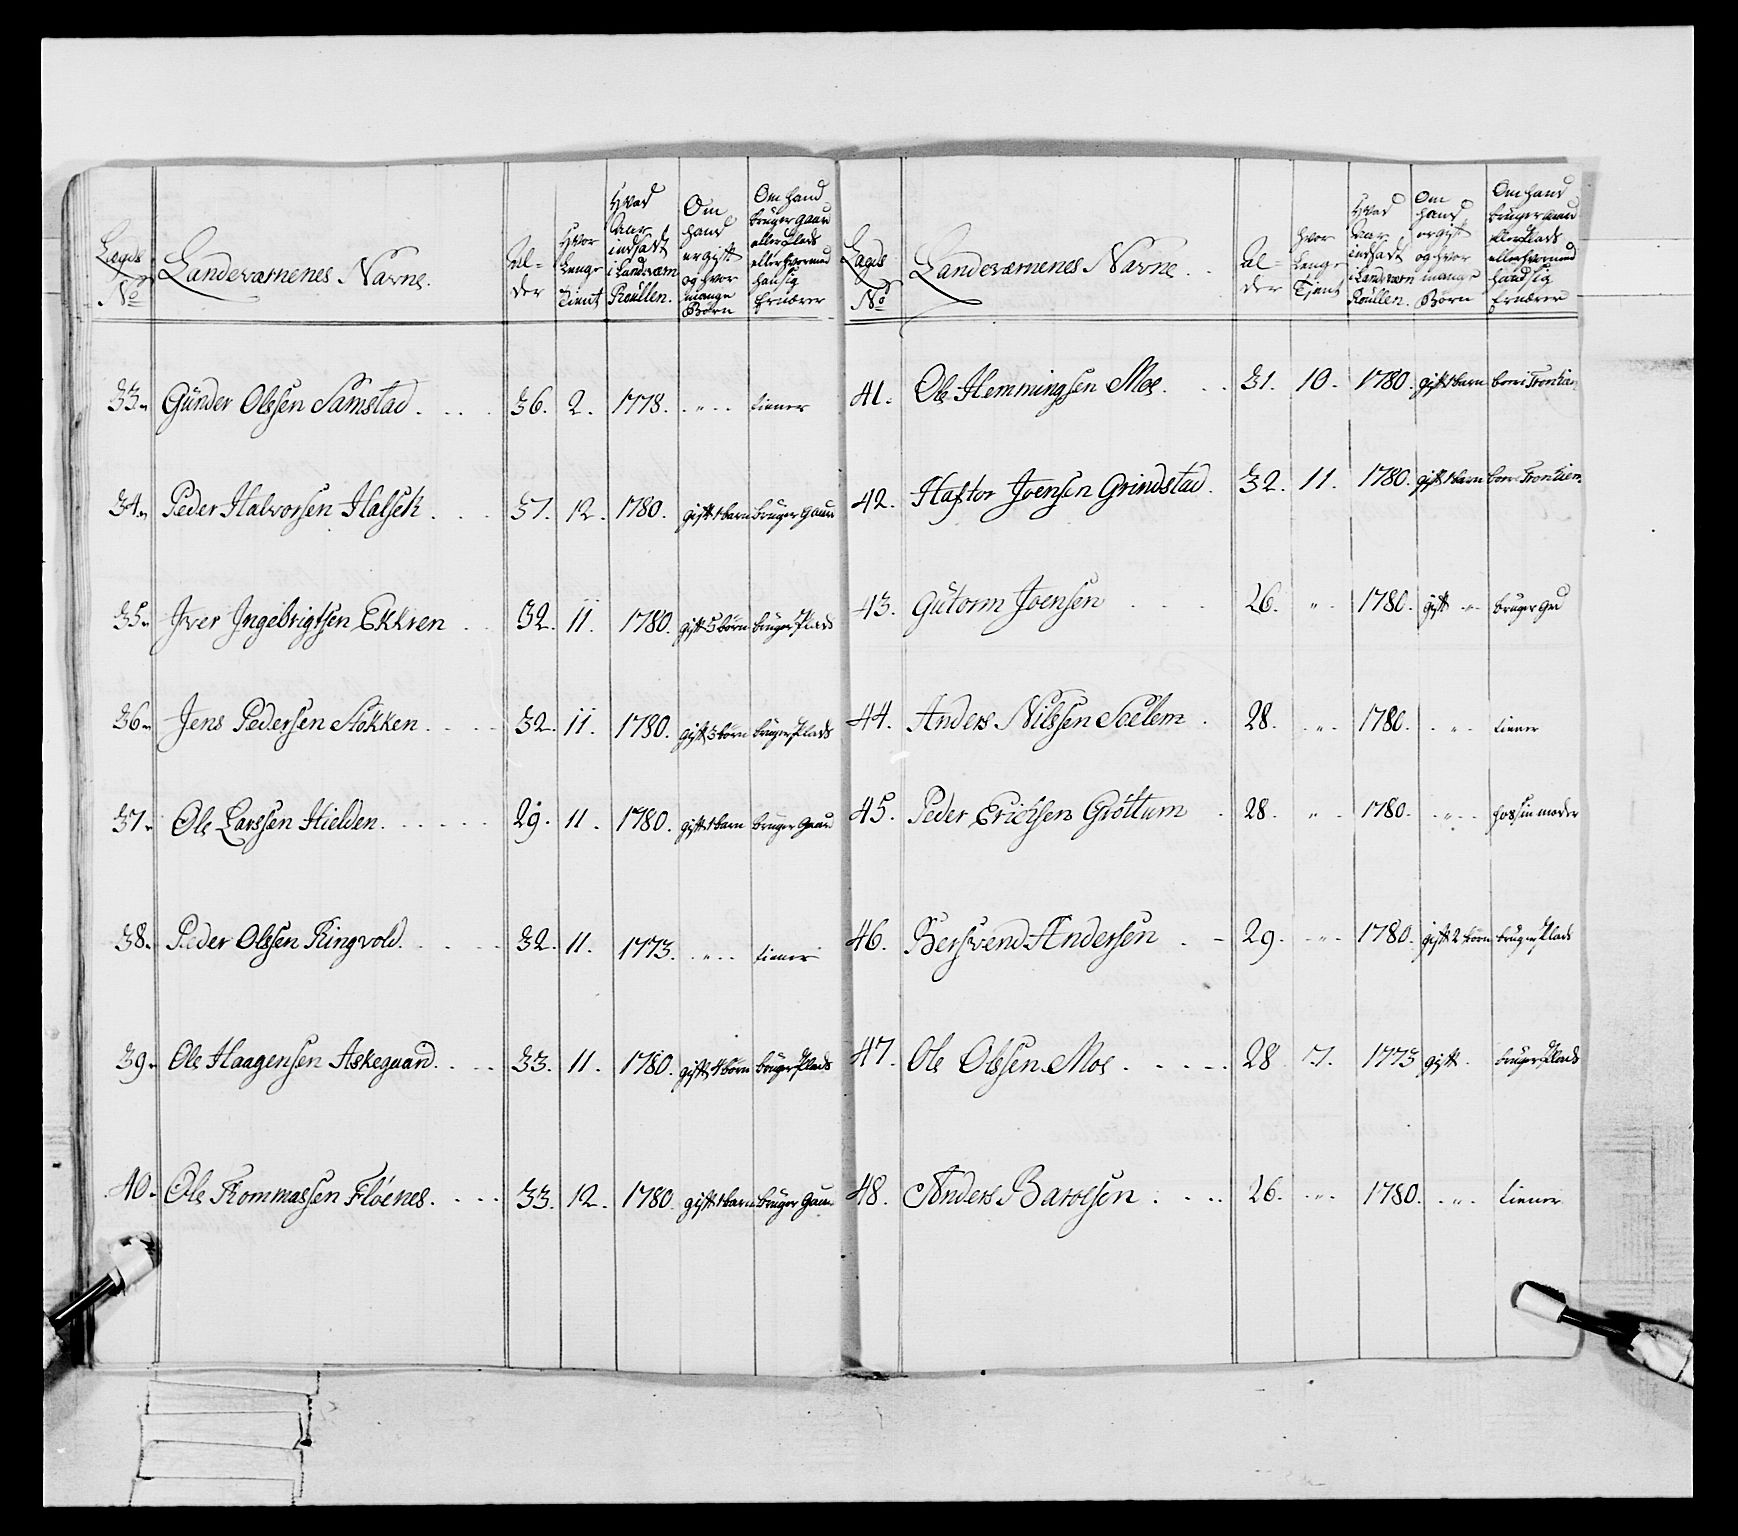 Lægds No | Landeværnenes Navne. | Al- der | Hvor længe Tient | Hvad Aar indsadt i Landværn Roullen. | Om hand er gift og hvor mange Børn | Om hand bruger gaard eller Plads eller hvormed han sig ernærer
33. Günder Olssen Samstad . . . . 36. 2. 1778. . „ . . tiener
34. Peder Halvorsen Halseth . . . 37. 12. 1780. gift 1 barn bruger gaard
35. Iver Ingebrigtsen Ekkren . . 32. 11. 1780. gift 5 børn bruger Plads
36. Jens Pedersen Stokken . . . . 32. 11. 1780. gift 3 børn bruger Plads
37. Ole Larssen Hielden . . . . . . 29. 11. 1780. gift 1 barn bruger gaard
38. Peder Olssen Ringvold. . . . . 32. 11. 1773. . „ . . tiener
39. Ole Haagensen Askegaard. . . . 33. 11. 1780. gift 4 børn bruger Plads
40. Ole Tommassen Fløenes. . . . . 33. 12. 1780. gift 1 barn bruger gaar
Lægds No | Landeværnenes Navne . . | Al- der | hvor længe Tjent | Hvad Aar indsadt i Landværn Roullen. | Om hand er gift og hvor mange Børn | Om hand bruger gaard eller Plads eller hvormed hand sig ernærer
41. Ole Hemmingsen Moe. . . 31. 10. 1780. gift 1 barn bor i Trontien
42. Haftor Joensen Grindstad . 32. 11. 1780. gift 1 barn bor i Trontiem
43. Gutorm Joensen . . . . 26. „ . 1780. gift „ bruger
44. Anders Nilssen Soelem . 28. . „ . 1780. . „ . tiener
45. Peder Erichsen Grøttum . 28. „ . 1780. . „ . . hos sin moder
46. Bersvend Andersen . - 29. . „ . 1780. gift 2 børn bruger Plads
47. Ole Olssen Moe . . . . . 28 7. 1773 gift . bruger Plads
48. Anders Baroesen . . . . 26. . „ . 1780. . „ . tiener